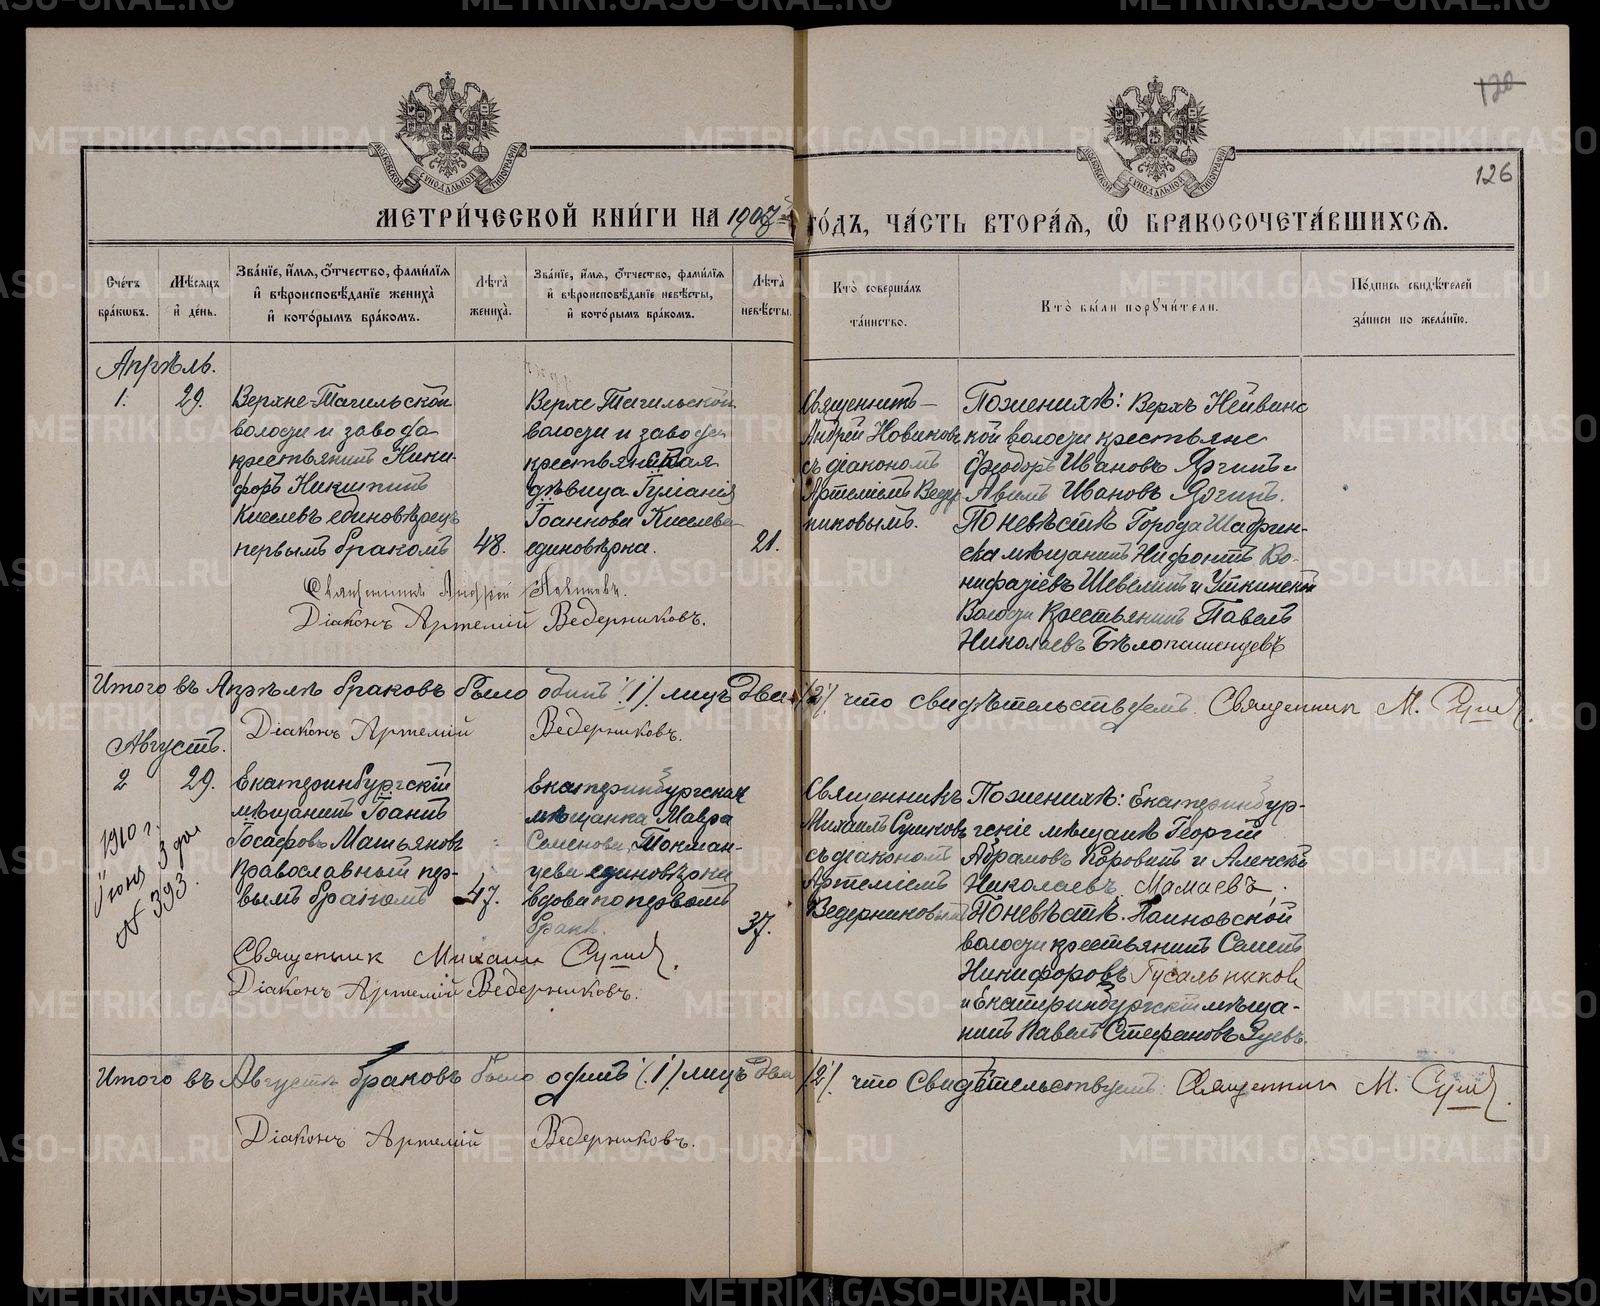 120
126
МЕТРИ́ЧЕСКОЙ КНИ́ГИ НА 1907й
ГО́ДЪ, ЧА́СТЬ ВТОРА́Я, Ѡ БРАКОСОЧЕТА́ВШИХСЯ.
Сче́тъ бра́кѡвъ.
Мѣ́сяцъ и҆ де́нь.
Зва́нїе, и҆́мя, ѻ҆́тчество, фами́лїя
и҆ вѣроисповѣ́данїе жениха̀
и҆ кото́рымъ бра́комъ.
Лѣ́та̀ жениха̀.
Зва́нїе, и҆́мя, ѻ҆́тчество, фами́лїя
и҆ вѣроисповѣ́данїе невѣ́сты,
и҆ кото́рымъ бра́комъ.
Лѣ́та̀ невѣ́сты.
Кто̀ соверша́лъ
та́инство.
Кто̀ бы́ли поручи́тели.
По́дпись свидѣ́телей
за́писи по жела́нїю.
Апрѣль.
1.
29.
Верхне-Тагильской
волости и завода
крестьянинъ Ники-
форъ Никитинъ
Киселевъ единовѣрецъ
первымъ бракомъ
48.
Верхе Тагильской
волости и завода
крестьянская
дѣвица Іуліанія
Іоаннова Киселева
единовѣрка.
21.
Священникъ
Андрей Новиковъ
съ діакономъ
Артеміемъ Ведер
никовымъ.
По женихѣ: Верхъ Нейвинс
кой волости крестьяне
Феодоръ Ивановъ
Ивановъ
По невѣстѣ Города Шадрин-
ска мѣщанинъ Нифонтъ Во-
нифатіевъ Шевелинъ и Уткинской
Волости Крестьянинъ Павелъ
Николаевъ Бѣлопашенцевъ
Священникъ Андрей Новиковъ.
Діаконъ Артемій Ведерниковъ.
Итого въ Апрѣлѣ браковъ было одинъ /1/ лицъ два /2/ что свидѣтельствуемъ. Священник М.
Діаконъ Артемій Ведерниковъ.
Августъ.
2
29.
1910 г.
Іюня 3 дня
№ 393.
Екатеринбургскій
мѣщанинъ Іоаннъ
Іосифовъ
Православный пер-
вымъ бракомъ
47.
Екатеринбургская
мѣщанка Мавра
Семенова Токман-
цева единовѣрка
вдова по первомъ
бракѣ.
37.
Священникъ
Михаилъ Сушковъ
съ діакономъ
Артеміемъ
Ведерниковымъ
По женихѣ: Екатеринбур-
гскіе мѣщане Георгій
Абрамовъ Коровинъ и Алексѣй
Николаевъ Мамаевъ.
По невѣстѣ.
волости крестьянинъ Семенъ
Никифоровъ Гусальников
и Екатеринбургскій мѣща-
нинъ Павелъ Стефановъ
Священник Михаил
Діаконъ Артемій Ведерниковъ.
Итого въ Августѣ браковъ было одинъ /1/ лицъ два /2/ что Свидѣтельствуемъ: Священник М.
Діаконъ Артемій Ведерниковъ.
METRIKI.GASO-URAL.RU